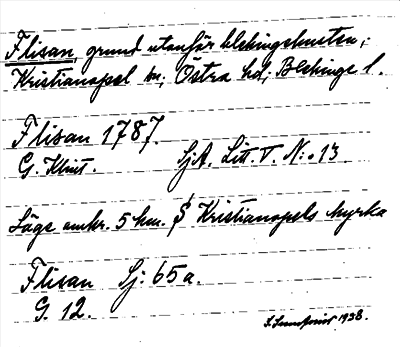 Flisan, grund utanför blekingskusten;
Kristianopel sn; Östra hd; Blekinge l.
Flisan 1787.
G. Klint. SjA. Litt. V. N:o 13
Läge omkr. 5 km. S Kristianopels kyrka
Flisan Sj: 65a.
G. 12.
1938.